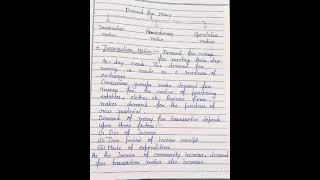 Demand for money
Transaction motive
Precautionary motive
Speculative motive
* Transaction Motive :- Demand for money
for meeting their day
to day needs. This demand for
money is made as a medium of
exchange.
Consumers groups make demand for
money for the motive of purchasing
eatables, clothes etc. Business firms
makes demand for the purchase of
raw material.
Demand of money for transaction depends
upon three factors :-
(i) Size of income
(ii) Time period of income receipt
(iii) Mode of expenditure
As the income of community increase, demand
for transaction motive also increase.